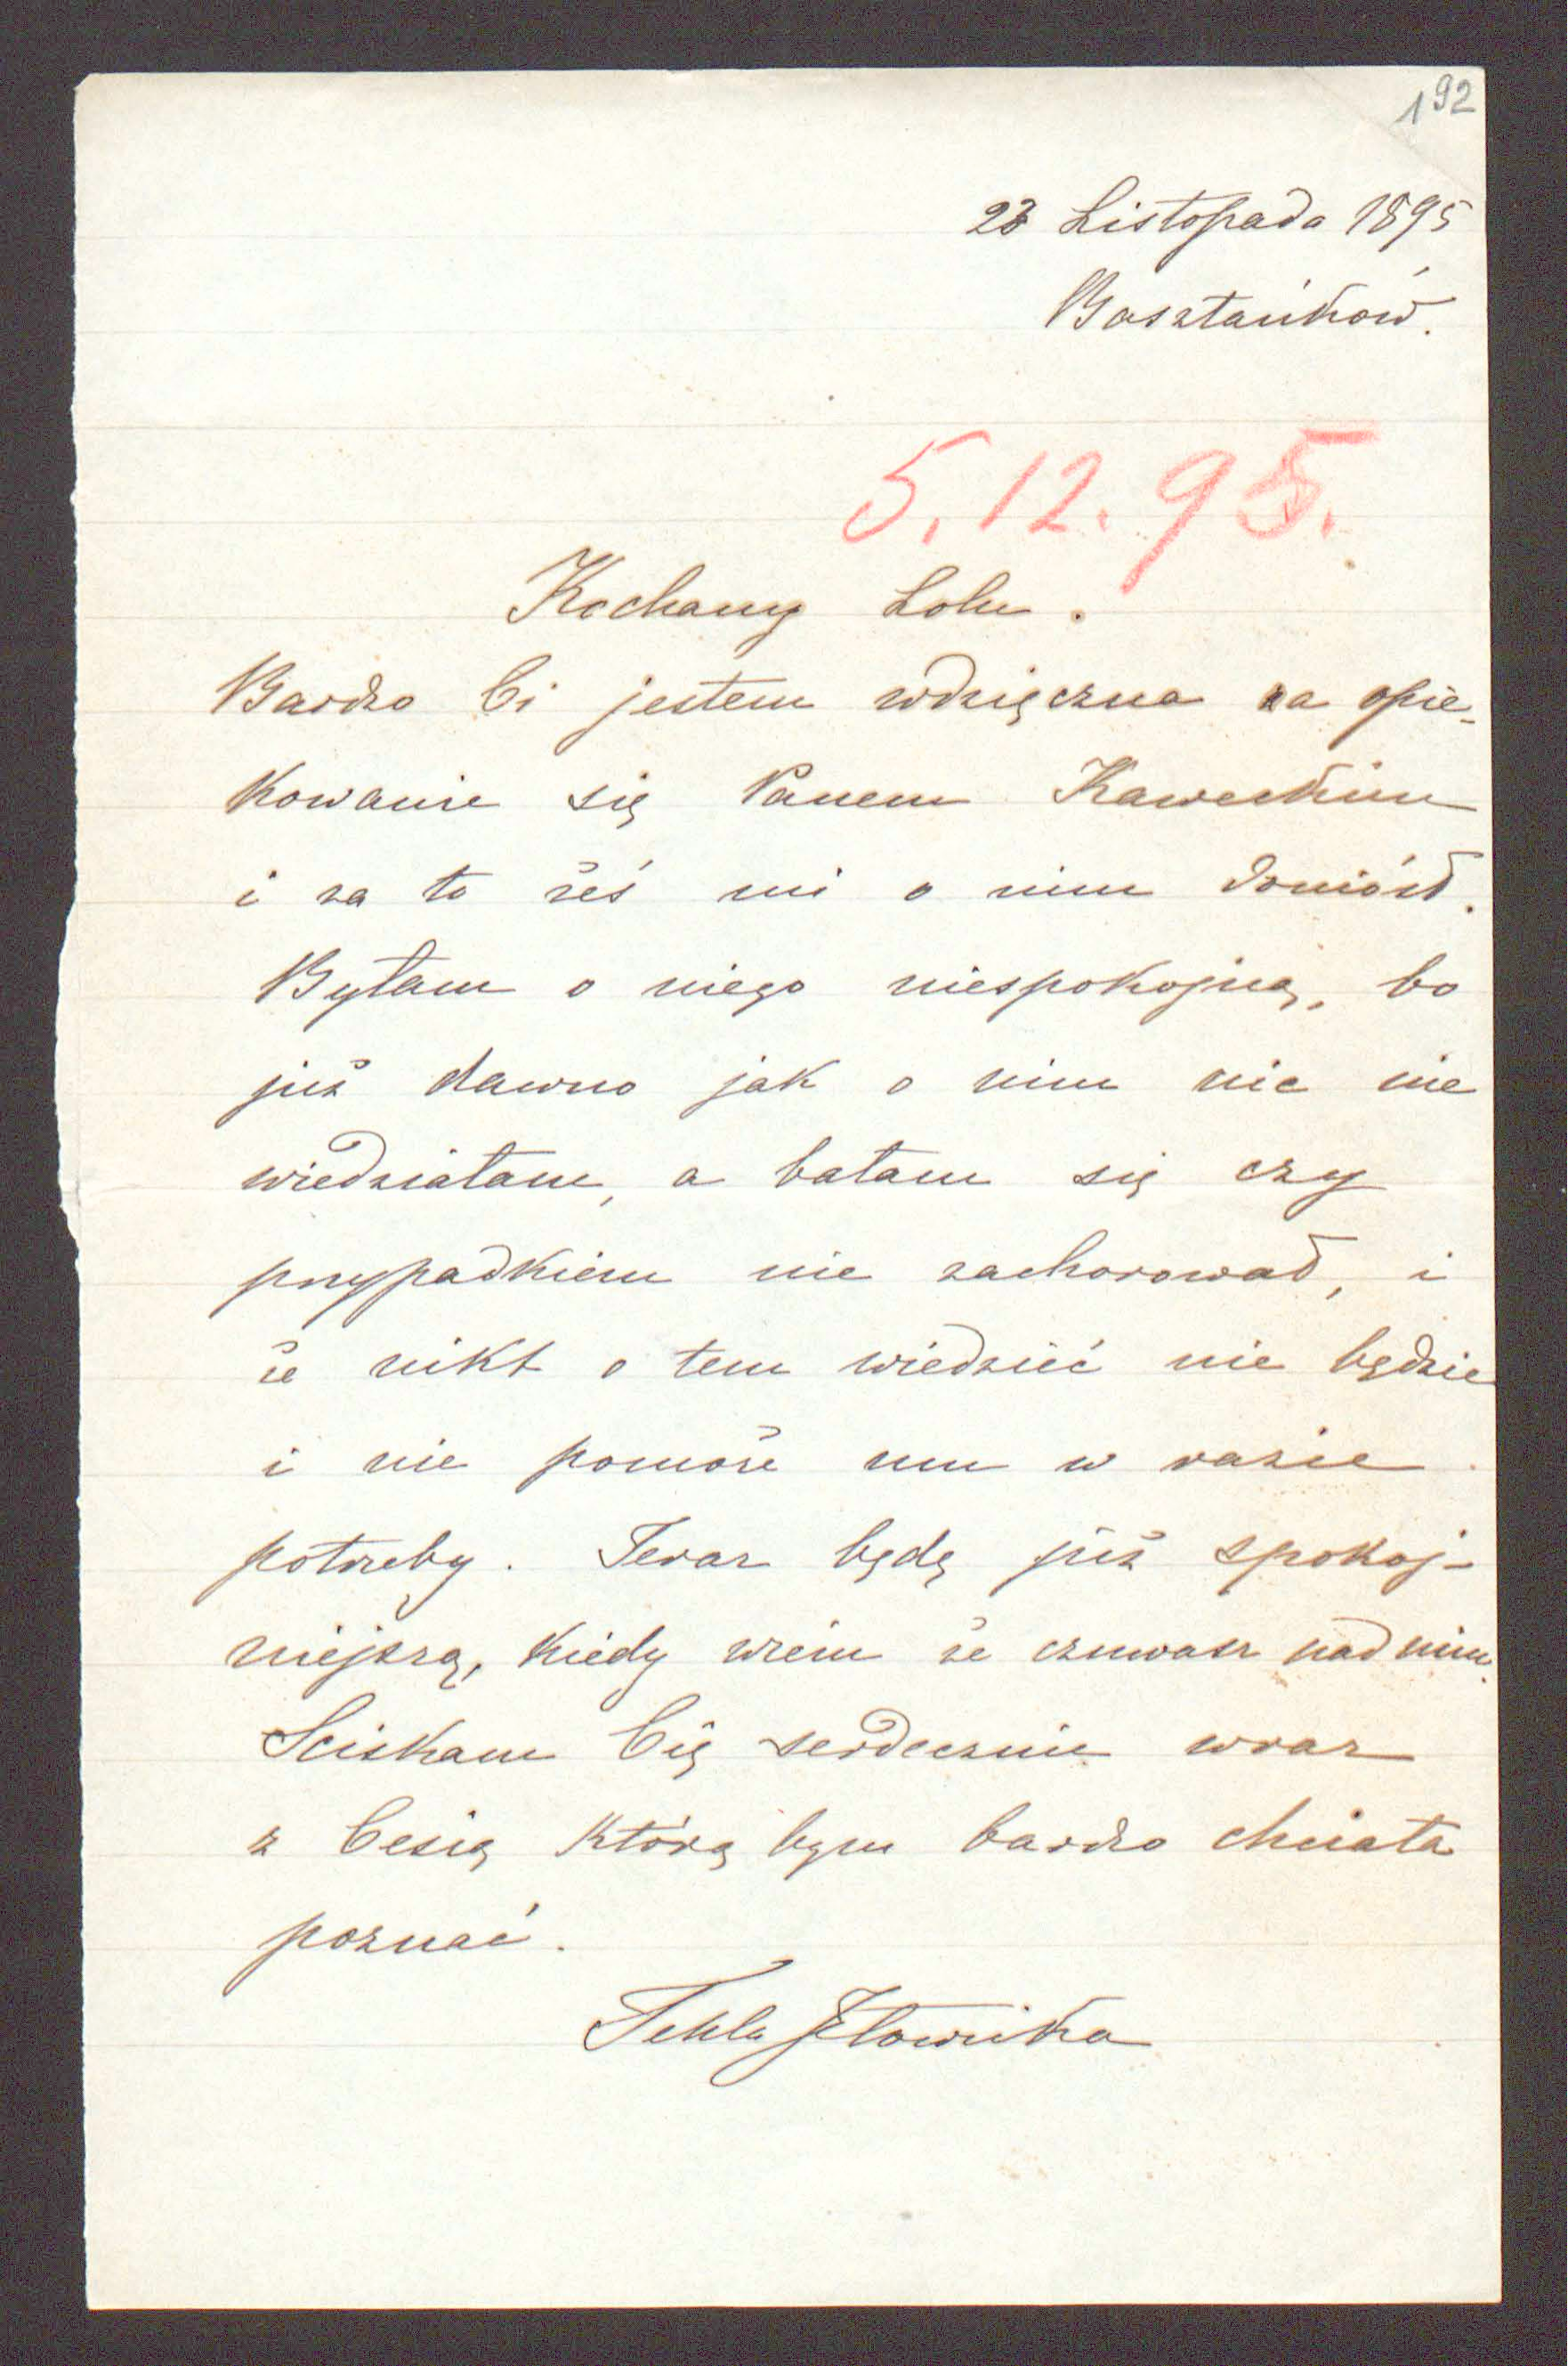 192
23 Listopada 1895
Basztańków.
5.12.95.
Kochany Lolu.
Bardzo Ci jestem wdzięczna za opie-
kowanie się Panem Kaweckim
i za to żeś mi o nim doniósł.
Byłam o niego niespokojną, bo
już dawno jak o nim nic nie
wiedziałam, a bałam się czy
przypadkiem nie zachorował, i
że nikt o tem wiedzieć nie będzie
i nie pomoże mu w razie
potrzeby. Teraz będę już spokoj-
niejszą, kiedy wiem że czuwasz nad nim.
Sciskam Cię serdecznie wraz
z Cesią którą bym bardzo chciała
poznać.
Tekla Jełowicka